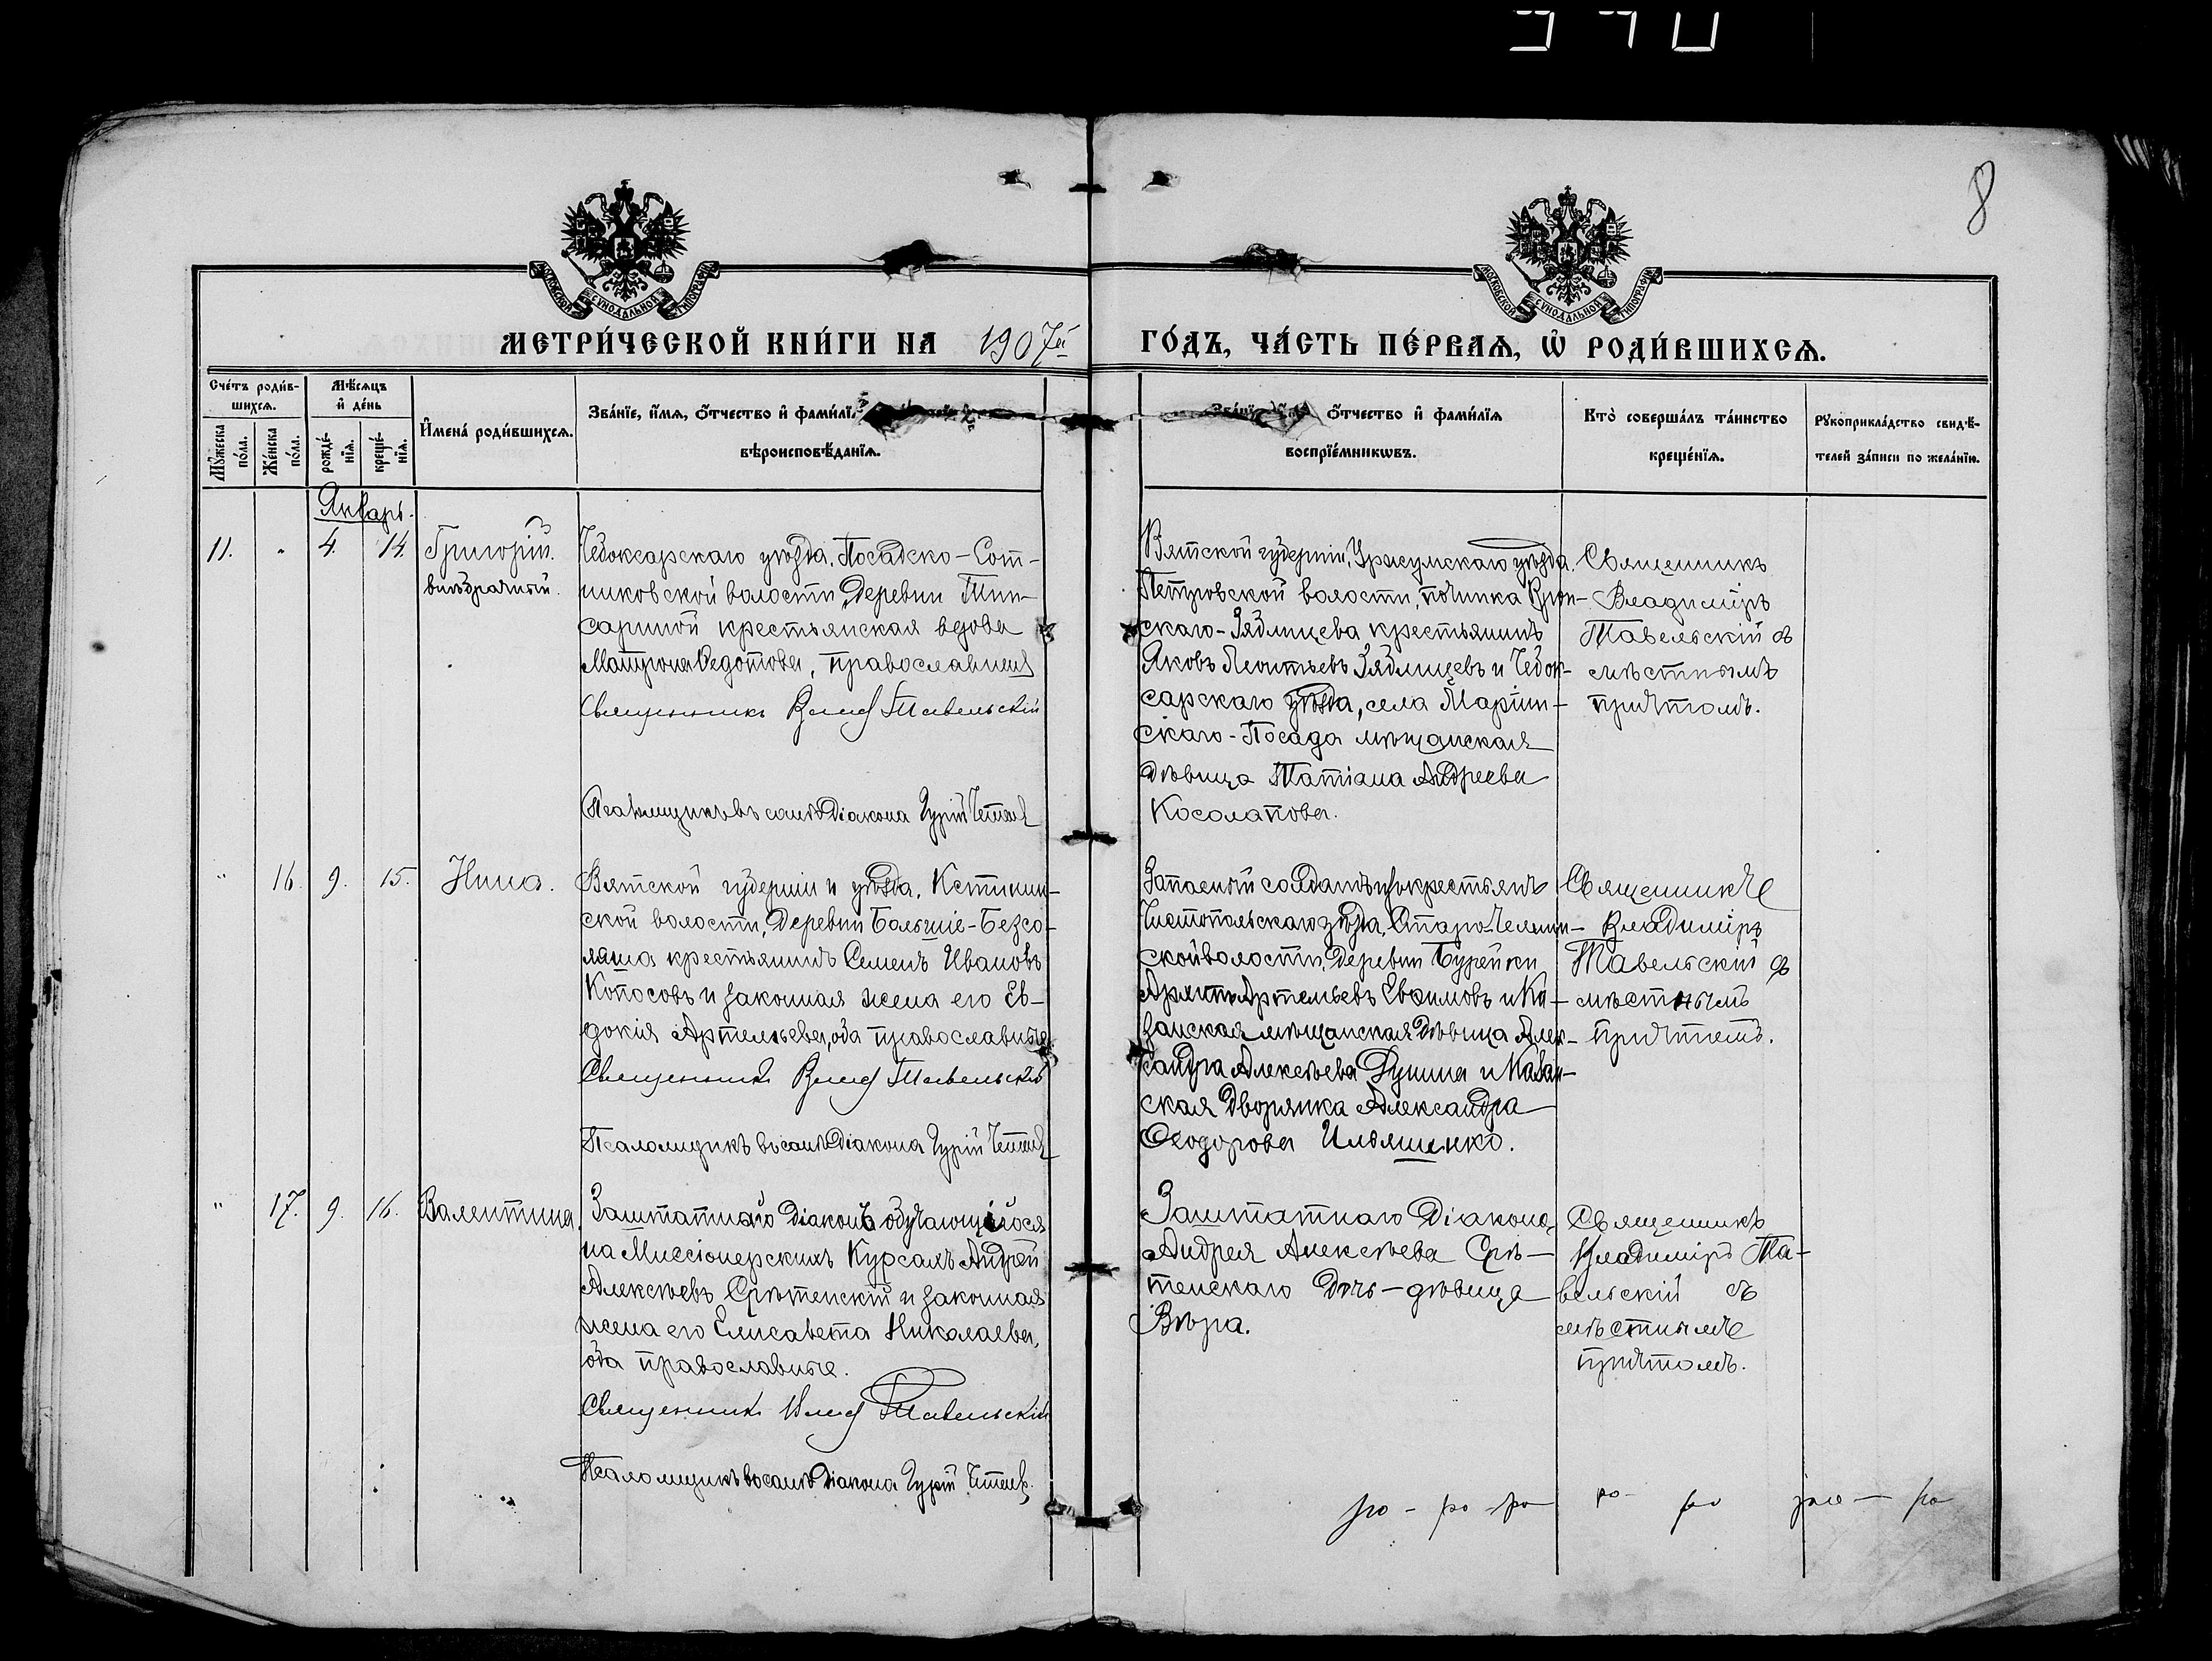 8
МОСКОВСКОЙ СѴНОДАЛЬНОЙ ТИПОГРАФІИ
МОСКОВСКОЙ СѴНОДАЛЬНОЙ ТИПОГРАФІИ
МЕТРИ́ЧЕСКОЙ КНИ́ГИ НА 1907й ГО́ДЪ, ЧА́СТЬ ПЕ́РВАѦ, Ѡ҆ РОДИ́ВШИХСѦ.
Сче́тъ роди́в-
шихсѧ.
Мꙋ́жеска по́ла.
Же́нска по́ла.
Мѣ́сѧцъ
и҆ де́нь
рожде́-
нїѧ.
креще́-
нїѧ.
И҆мена̀ роди́вшихсѧ.
Зва́нїе, и҆́мѧ, ѻ҆́тчество и҆ фами́лї
вѣроисповѣ́данїѧ.
ѻ҆́тчество и҆ фами́лїѧ
воспрїе́мникѡвъ.
Кто̀ соверша́лъ та́инство
креще́нїѧ.
Рꙋкоприкла́дство свидѣ́-
телей за́писи по жела́нїю.
Январь.
11. " 4. 14. Григорій.
внѣбрачный.
Чебоксарскаго уѣзда, Посадско-Сот-
никовской волости, деревни Шин-
сариной крестьянская вдова
Матрона Ѳедотова, православная
Священникъ Влад Тавельскій
Псаломщикъ въ санѣ діакона Гурій
Вятской губерніи, Уржумскаго уѣзда,
Петровской волости, починка
скаго-Зяблицева крестьянинъ
Яковъ Леонтьевъ Зяблицевъ и Чебок-
сарскаго уѣзда, села Маріин-
скаго-Посада мѣщанская
дѣвица Татіана Андреева
Косолапова.
Священникъ
Владиміръ
Тавельскій съ
мѣстнымъ
причтомъ.
" 16. 9. 15. Нина.
Вятской губерніи и уѣзда, Кстинин-
ской волости, деревни Большіе-Безсо-
ляша крестьянинъ Семенъ Ивановъ
Копосовъ и законная жена его Ев-
докія Артемьева, оба православные
Священникъ Влад Тавельскій
Псаломщикъ въ санѣ діакона Гурій
Запасный солдатъ изъ крестьянъ
Чистопольскаго уѣзда, Старо-Челнин-
ской волости, деревни Бурейки
Артемьевъ Евсимовъ и Ка-
занская мѣщанская дѣвица Алек-
сандра Алексѣева Дунина и Казан-
ская дворянка Александра
Ѳеодорова Ильяшенко.
Священникъ
Владиміръ
Тавельскій съ
мѣстнымъ
причтомъ.
" 17. 9. 16. Валентина.
Заштатнаго діакона обучающагося
на Миссіонерскихъ Курсахъ Андрей
Алексѣевъ Срѣтенскій и законная
жена его Елисавета Николаева,
оба православные.
Священникъ Влад Тавельскій
Псаломщикъ въ санѣ діакона Гурій
Заштатнаго діакона
Андрея Алексѣева Срѣ-
тенскаго дочь-дѣвица
Вѣра.
Священникъ
Владиміръ Та-
вельскій съ
мѣстнымъ
причтомъ.